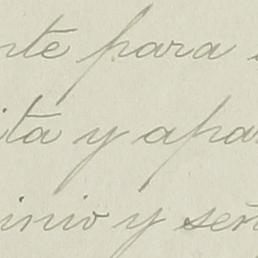 nte para
ita y apar
inio y señ